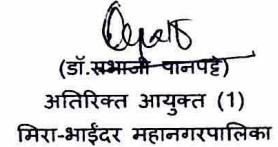 (डॉ.सभाजी पानपट्टे)
अतिरिक्त आयुक्त (1)
मिरा-भाईंदर महानगरपालिका